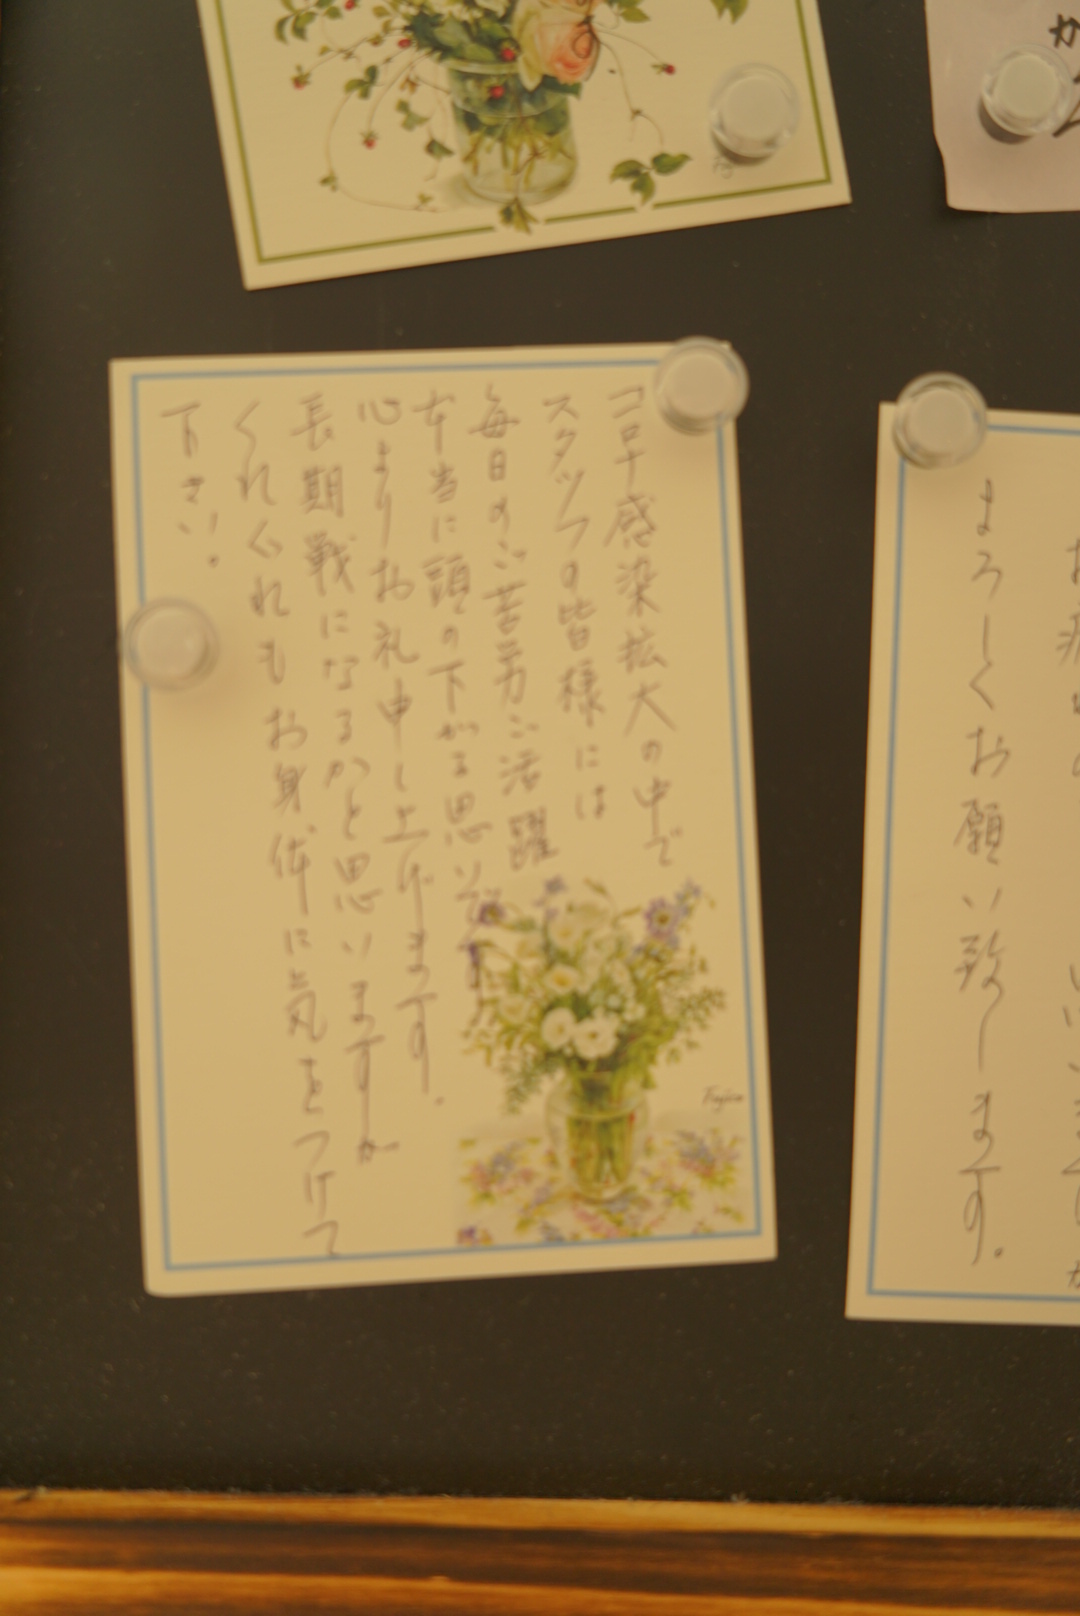 コロナ感染拡大の中で
スタッフの皆様には
毎日のご苦労ご活躍
本当に頭の下がる思いです。
心よりお礼申し上げます。
長期戦になるかと思いますが
くれぐれもお身体に気をつけて
下さい。
Fujico
よろしくお願い致します。